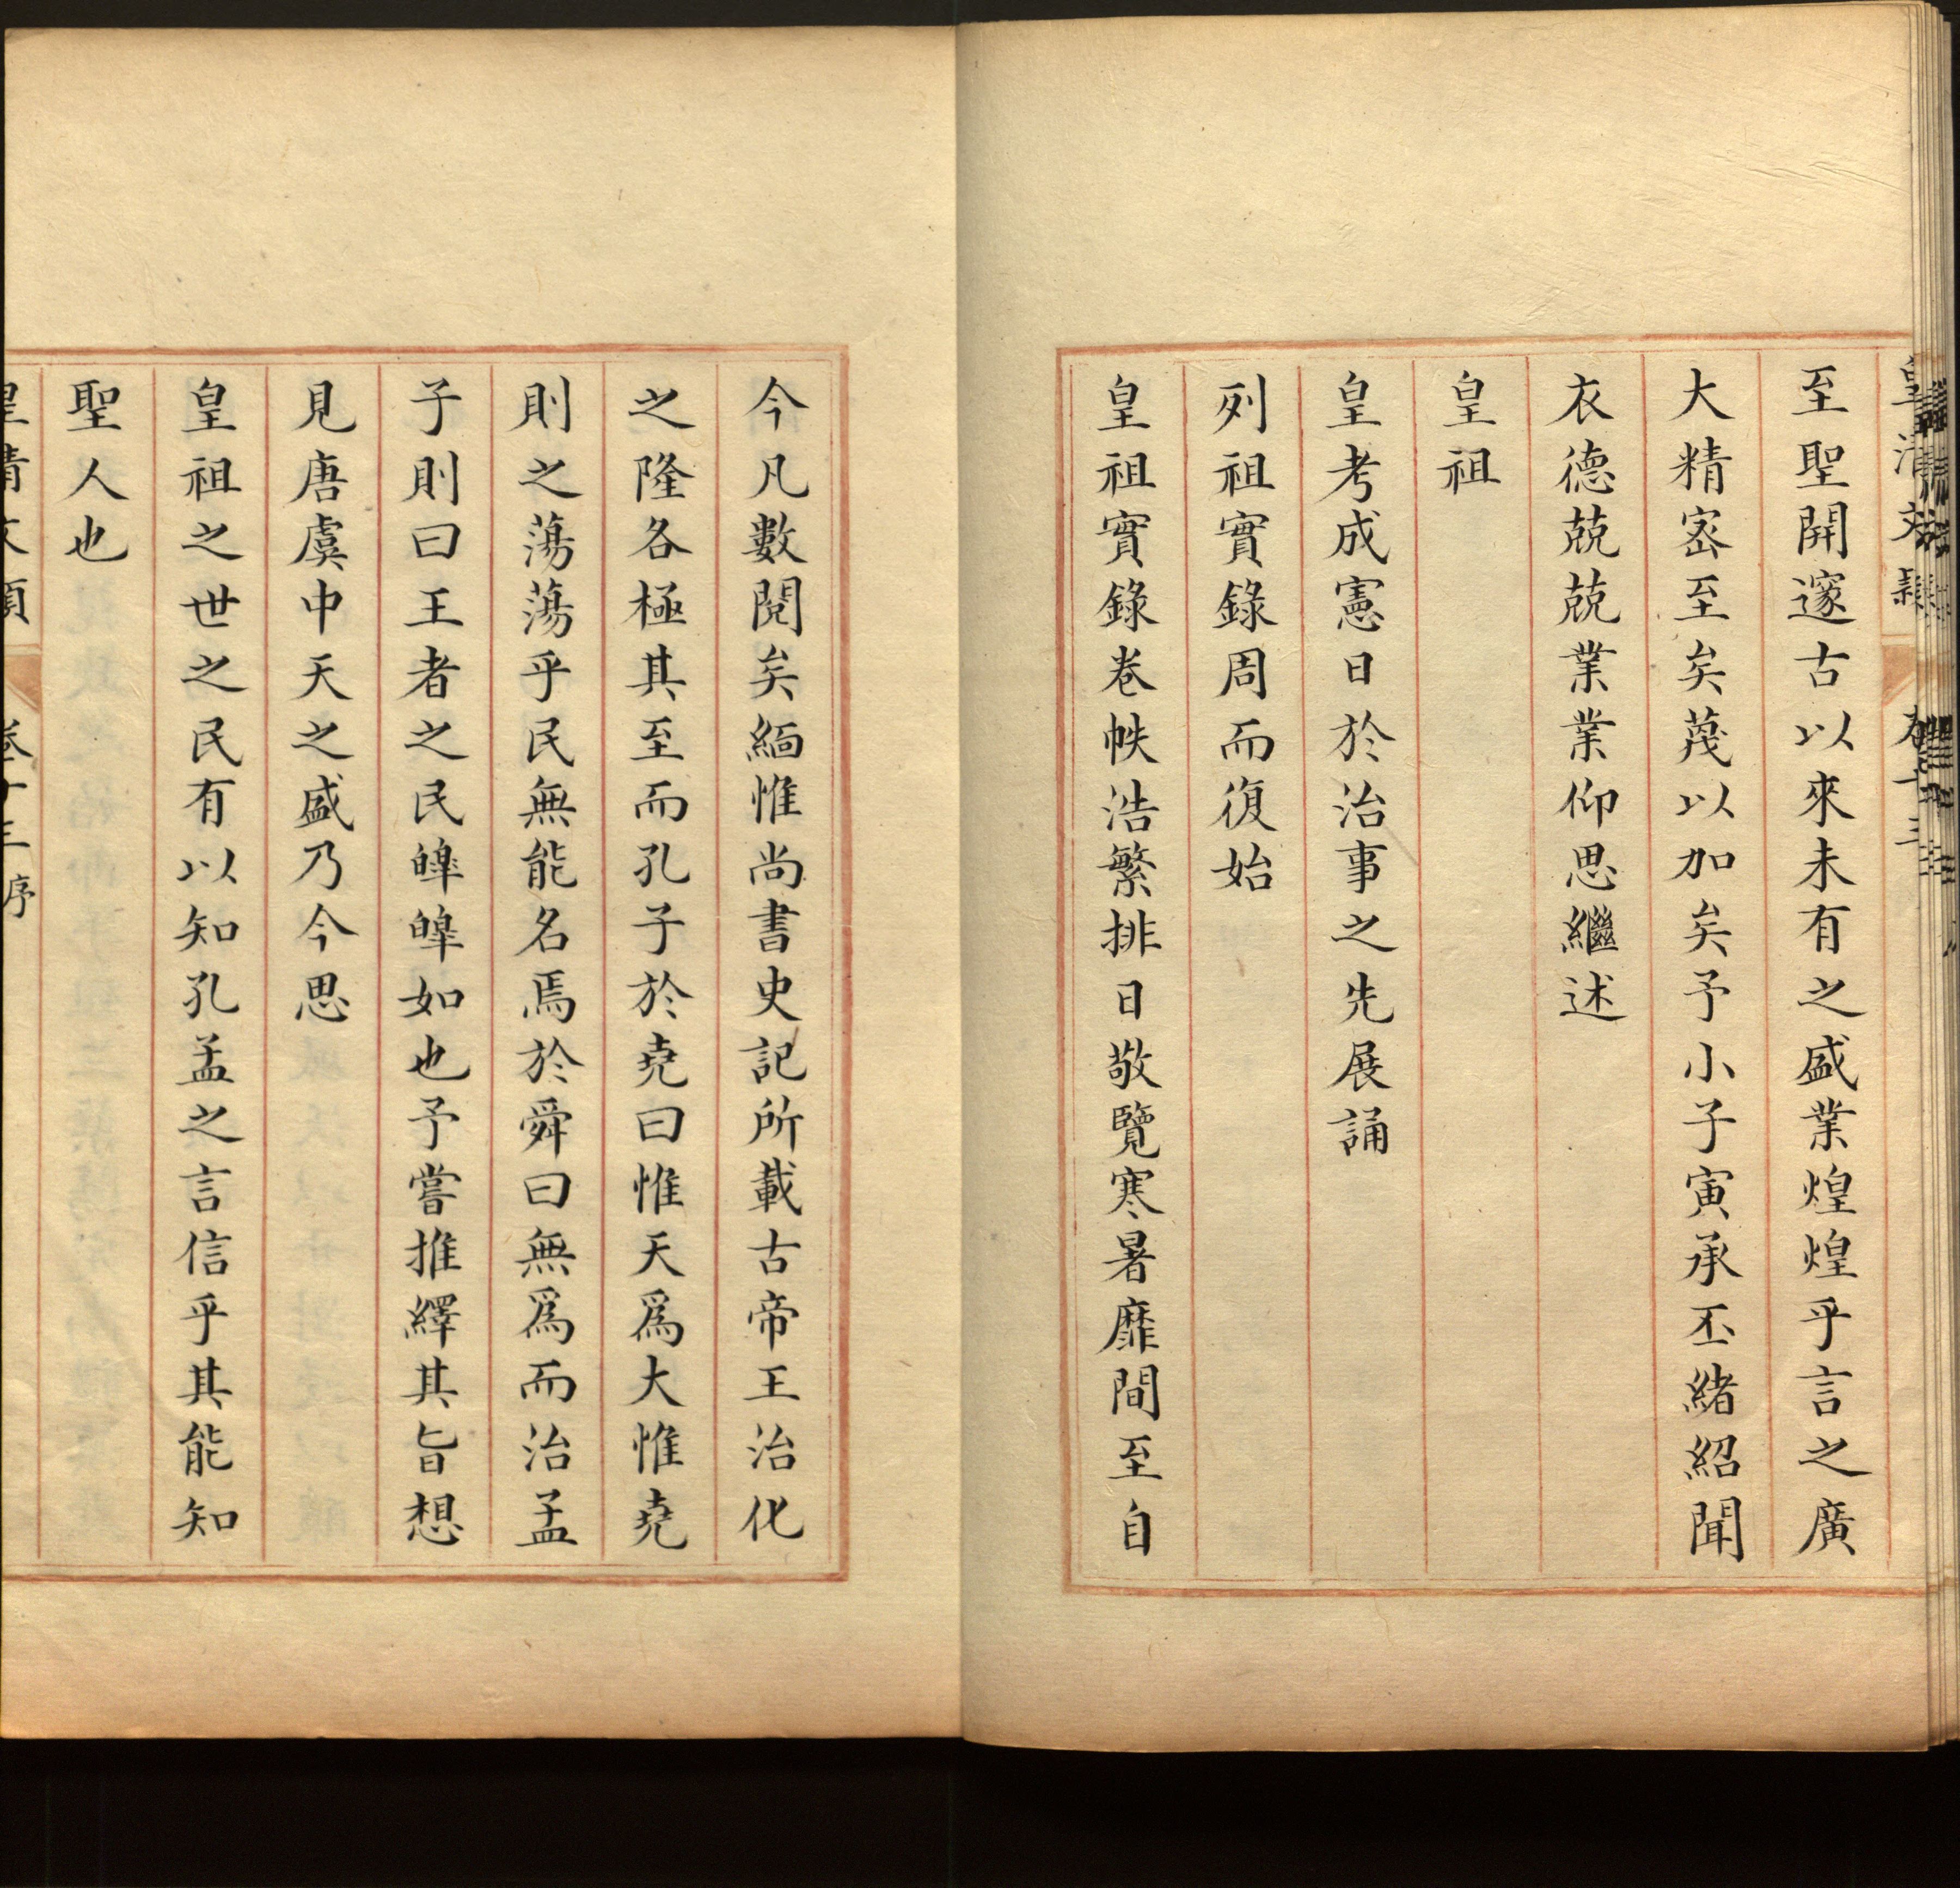 皇清文穎 卷十三
至聖開邃古以來未有之盛業煌煌乎言之廣
大精宻至矣蔑以加矣予小子寅承丕緒紹聞
衣德兢兢業業仰思繼述
皇祖
皇考成憲日於治事之先展誦
列祖實錄周而復始
皇祖實錄卷帙浩繁排日敬覽寒暑靡間至自
今凡數閱矣緬惟尚書史記所載古帝王治化
之隆各極其至而孔子於堯曰惟天爲大惟堯
則之蕩蕩乎民無能名焉於舜曰無爲而治孟
子則曰王者之民皥皥如也予嘗推繹其旨想
見唐虞中天之盛乃今思
皇祖之世之民有以知孔孟之言信乎其能知
聖人也
皇清文穎 卷十三 序